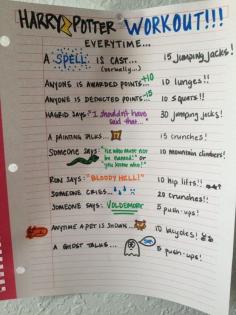 HARRY POTTER WORKOUT!!!
EVERYTIME...
A SPELL IS CAST... 15 jumping jacks!
(verbally...)
ANYONE IS AWARDED POINTS... +10 10 lunges!!
ANYONE IS DEDUCTED POINTS... -15 10 squats!!
HAGRID SAYS: "I shouldn't have said that..." 30 jumping jacks!
A PAINTING TALKS... 15 crunches!
Someone says: "he who must not be named" or "you know who!" 10 mountain climbers!
RON SAYS: "BLOODY HELL!" 10 hip lifts!!
SOMEONE CRIES... 20 crunches!!
SOMEONE SAYS: VOLDEMORT 5 push-ups!
ANYTIME A PET IS SHOWN... 10 bicycles!
A GHOST TALKS... 5 push-ups!